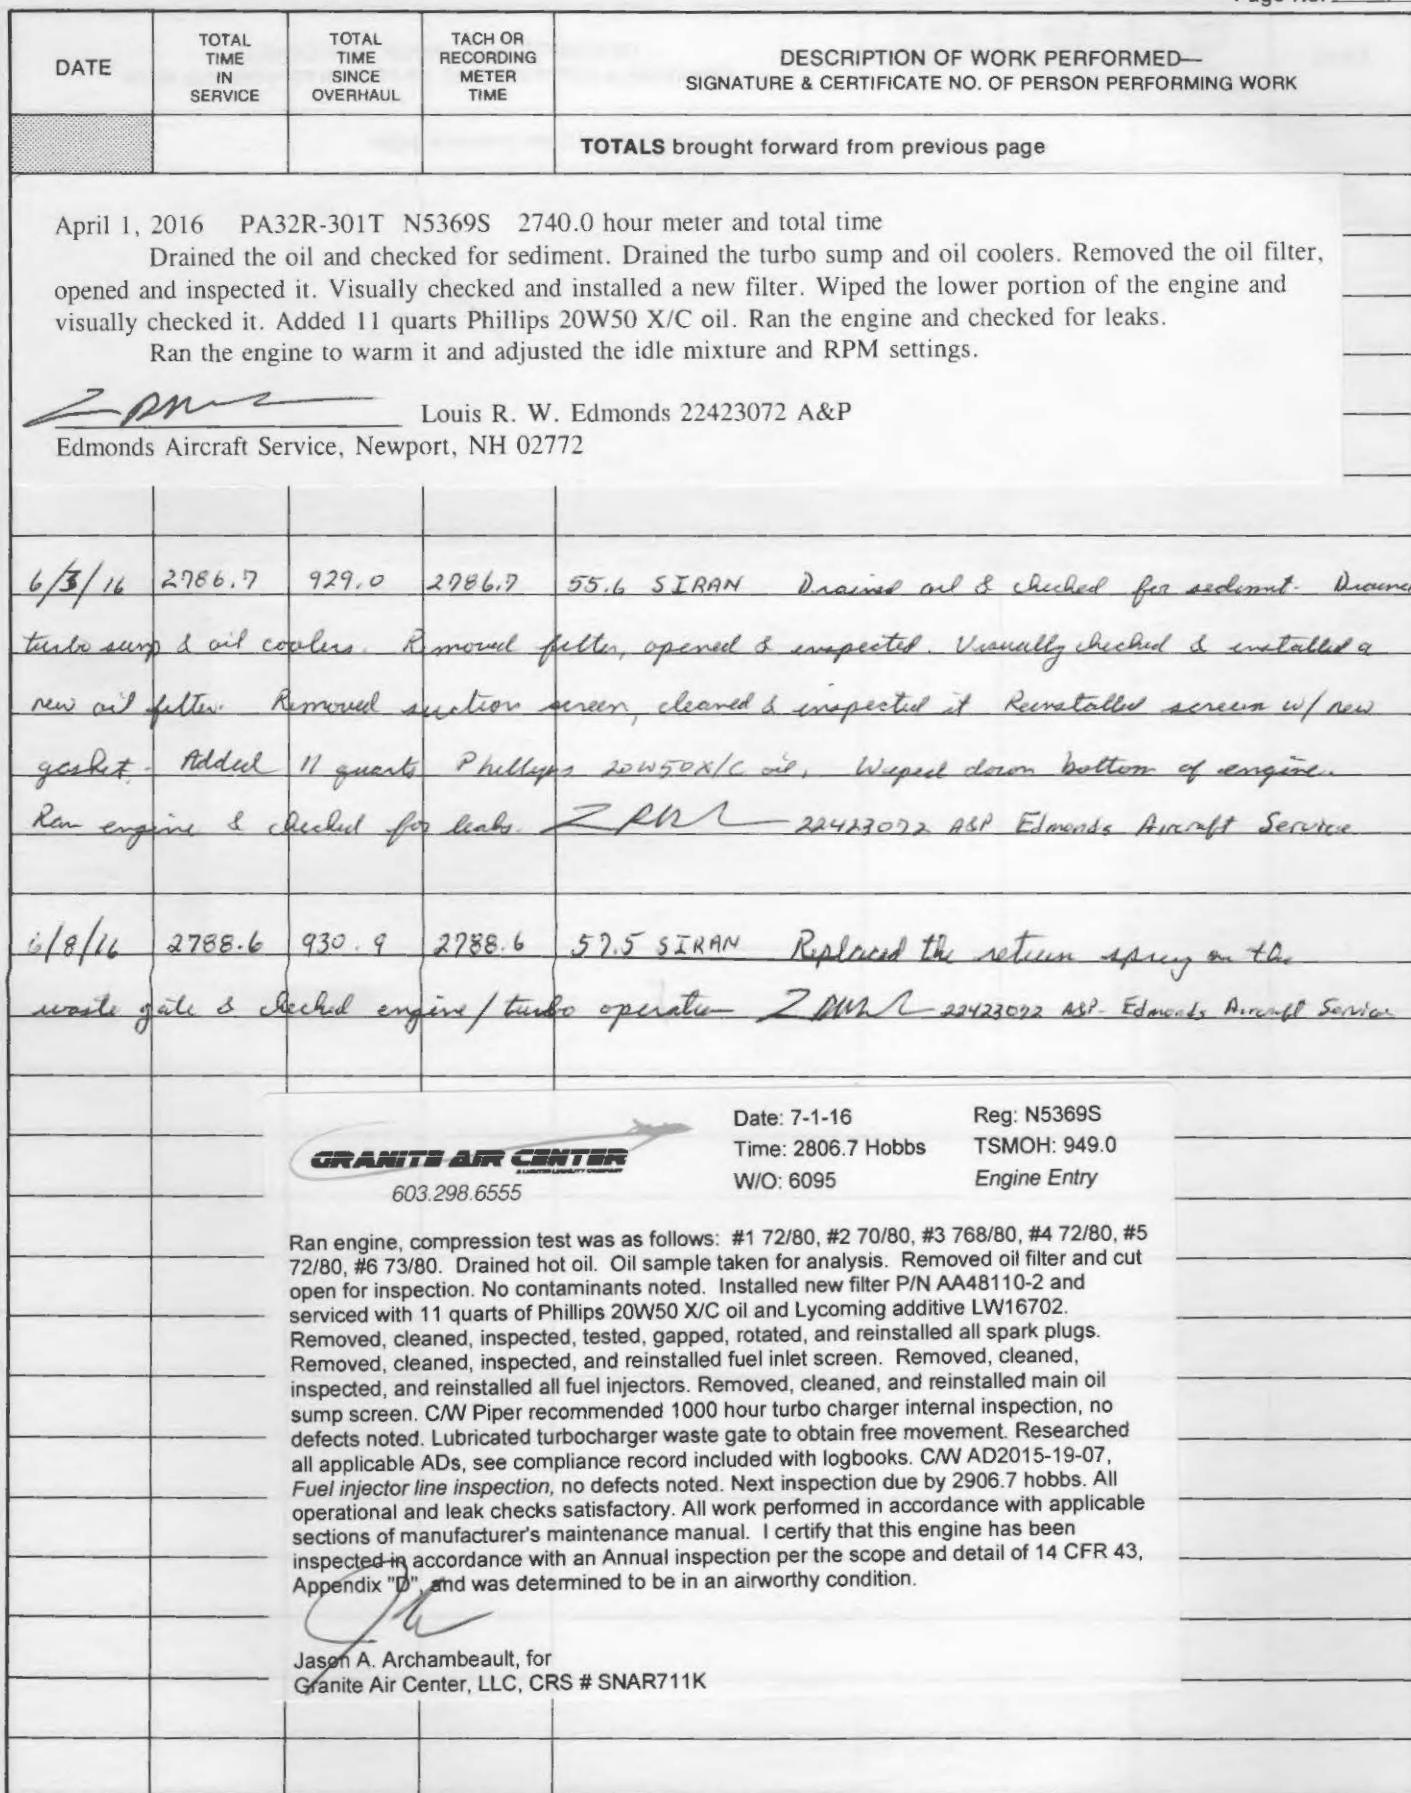 Page No.
DATE
TOTAL TIME IN SERVICE
TOTAL TIME SINCE OVERHAUL
TACH OR RECORDING METER TIME
DESCRIPTION OF WORK PERFORMED—
SIGNATURE & CERTIFICATE NO. OF PERSON PERFORMING WORK
TOTALS brought forward from previous page
April 1, 2016 PA32R-301T N5369S 2740.0 hour meter and total time
Drained the oil and checked for sediment. Drained the turbo sump and oil coolers. Removed the oil filter,
opened and inspected it. Visually checked and installed a new filter. Wiped the lower portion of the engine and
visually checked it. Added 11 quarts Phillips 20W50 X/C oil. Ran the engine and checked for leaks.
Ran the engine to warm it and adjusted the idle mixture and RPM settings.
Louis R. W. Edmonds 22423072 A&P
Edmonds Aircraft Service, Newport, NH 02772
6/3/16 2786.7 929.0 2786.7 55.6 SIRAN Drained oil & checked for sediment. Drained
turbo sump & oil coolers. Removed filter, opened & inspected. Visually checked & installed a
new oil filter. Removed suction screen, cleaned & inspected it Reinstalled screen w/ new
gasket. Added 11 quarts Phillips 20W50X/C oil, Wiped down bottom of engine.
Ran engine & checked for leaks. 22423072 A&P Edmonds Aircraft Service
6/8/16 2788.6 930.9 2788.6 57.5 SIRAN Replaced the return spring on the
waste gate & checked engine/turbo operation 22423072 A&P- Edmonds Aircraft Service
GRANITE AIR CENTER
A LIMITED LIABILITY COMPANY
603.298.6555
Date: 7-1-16 Reg: N5369S
Time: 2806.7 Hobbs TSMOH: 949.0
W/O: 6095 Engine Entry
Ran engine, compression test was as follows: #1 72/80, #2 70/80, #3 768/80, #4 72/80, #5
72/80, #6 73/80. Drained hot oil. Oil sample taken for analysis. Removed oil filter and cut
open for inspection. No contaminants noted. Installed new filter P/N AA48110-2 and
serviced with 11 quarts of Phillips 20W50 X/C oil and Lycoming additive LW16702.
Removed, cleaned, inspected, tested, gapped, rotated, and reinstalled all spark plugs.
Removed, cleaned, inspected, and reinstalled fuel inlet screen. Removed, cleaned,
inspected, and reinstalled all fuel injectors. Removed, cleaned, and reinstalled main oil
sump screen. C/W Piper recommended 1000 hour turbo charger internal inspection, no
defects noted. Lubricated turbocharger waste gate to obtain free movement. Researched
all applicable ADs, see compliance record included with logbooks. C/W AD2015-19-07,
Fuel injector line inspection, no defects noted. Next inspection due by 2906.7 hobbs. All
operational and leak checks satisfactory. All work performed in accordance with applicable
sections of manufacturer's maintenance manual. I certify that this engine has been
inspected in accordance with an Annual inspection per the scope and detail of 14 CFR 43,
Appendix "D", and was determined to be in an airworthy condition.
Jason A. Archambeault, for
Granite Air Center, LLC, CRS # SNAR711K